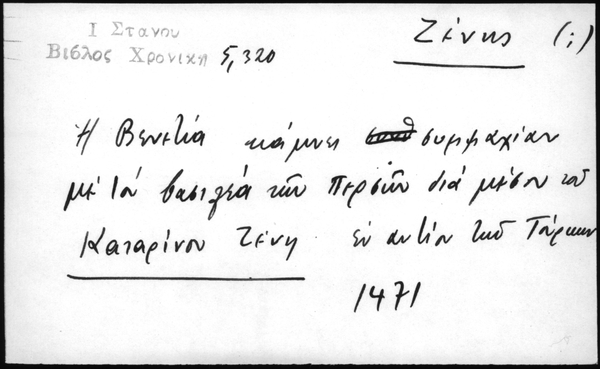 Ι Στανου
Βιβλος Χρονικη 5,320
Ζένης (;)
Ἡ Βενετία κάμνει συμμαχίαν
μέ τόν βασιλεά τῶν Περσῶν διά μέσου τοῦ
Καταρίνου Τζένη ἐναντίον τῶν Τούρκων
1471